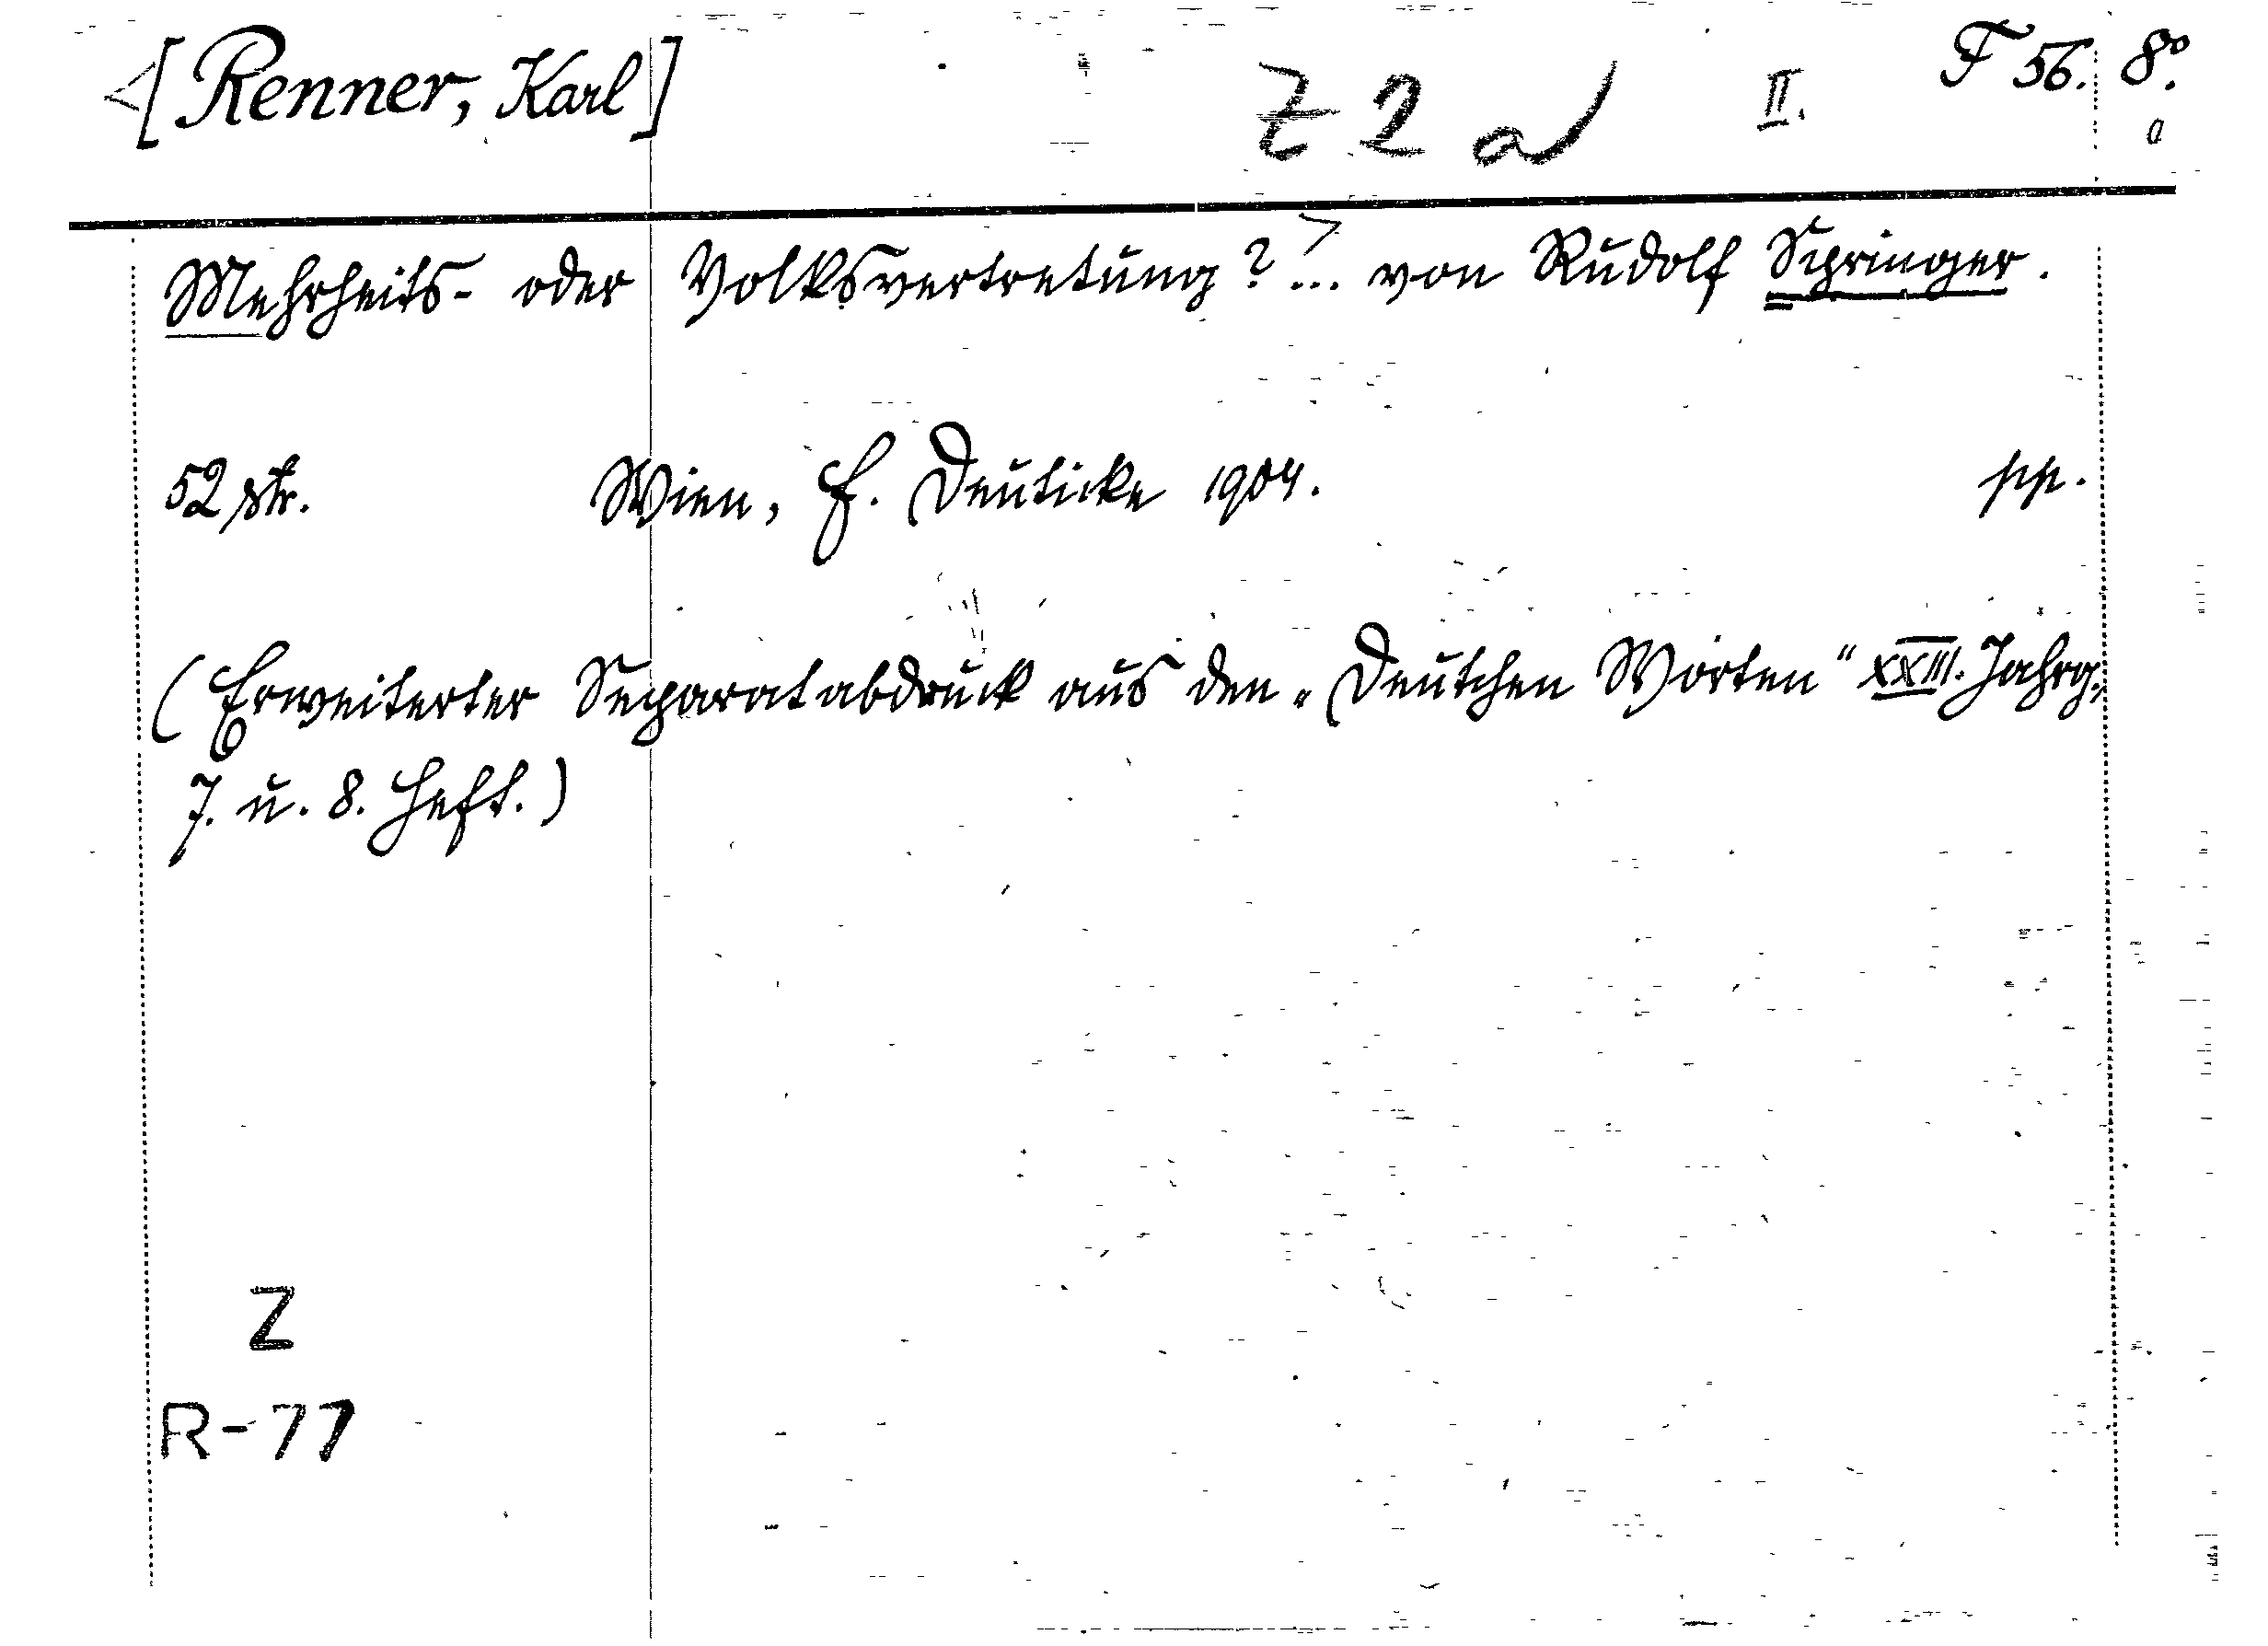 <[Renner, Karl] Z 2 a II. F 56. 8°.
a
Mehrheits- oder Volksvertretung?> ... von Rudolf Springer.
52 str. Wien, F. Deuticke 1904. pp.
(Erweiterter Separatabdruck aus den „Deutschen Worten“ XXIII. Jahrg.,
7. u. 8. Heft.)
Z
R-77